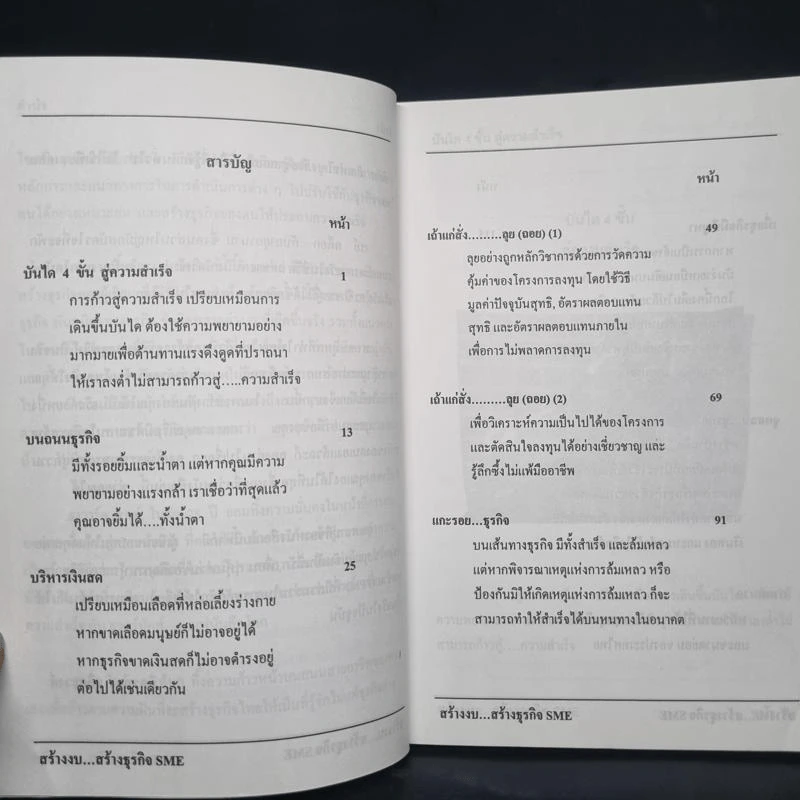 สารบัญ
หน้า
บันได 4 ขั้น สู่ความสำเร็จ 1
การก้าวสู่ความสำเร็จ เปรียบเหมือนการ
เดินขึ้นบันได ต้องใช้ความพยายามอย่าง
มากมายเพื่อต้านทานแรงดึงดูดที่ปราถนา
ให้เราลงต่ำไม่สามารถก้าวสู่.....ความสำเร็จ
บนถนนธุรกิจ 13
มีทั้งรอยยิ้มและน้ำตา แต่หากคุณมีความ
พยายามอย่างแรงกล้า เราเชื่อว่าที่สุดแล้ว
คุณอาจยิ้มได้....ทั้งน้ำตา
บริหารเงินสด 25
เปรียบเหมือนเลือดที่หล่อเลี้ยงร่างกาย
หากขาดเลือดมนุษย์ก็ไม่อาจอยู่ได้
หากธุรกิจขาดเงินสดก็ไม่อาจดำรงอยู่
ต่อไปได้เช่นเดียวกัน
สร้างงบ...สร้างธุรกิจ SME
หน้า
เถ้าแก่สั่ง.........ลุย (ถอย) (1) 49
ลุยอย่างถูกหลักวิชาการด้วยการวัดความ
คุ้มค่าของโครงการลงทุน โดยใช้วิธี
มูลค่าปัจจุบันสุทธิ, อัตราผลตอบแทน
สุทธิ และอัตราผลตอบแทนภายใน
เพื่อการไม่พลาดการลงทุน
เถ้าแก่สั่ง.........ลุย (ถอย) (2) 69
เพื่อวิเคราะห์ความเป็นไปได้ของโครงการ
และตัดสินใจลงทุนได้อย่างเชี่ยวชาญ และ
รู้ลึกซึ้งไม่แพ้มืออาชีพ
แกะรอย...ธุรกิจ 91
บนเส้นทางธุรกิจ มีทั้งสำเร็จ และล้มเหลว
แต่หากพิจารณาเหตุแห่งการล้มเหลว หรือ
ป้องกันมิให้เกิดเหตุแห่งการล้มเหลว ก็จะ
สามารถทำให้สำเร็จได้บนหนทางในอนาคต
สร้างงบ...สร้างธุรกิจ SME